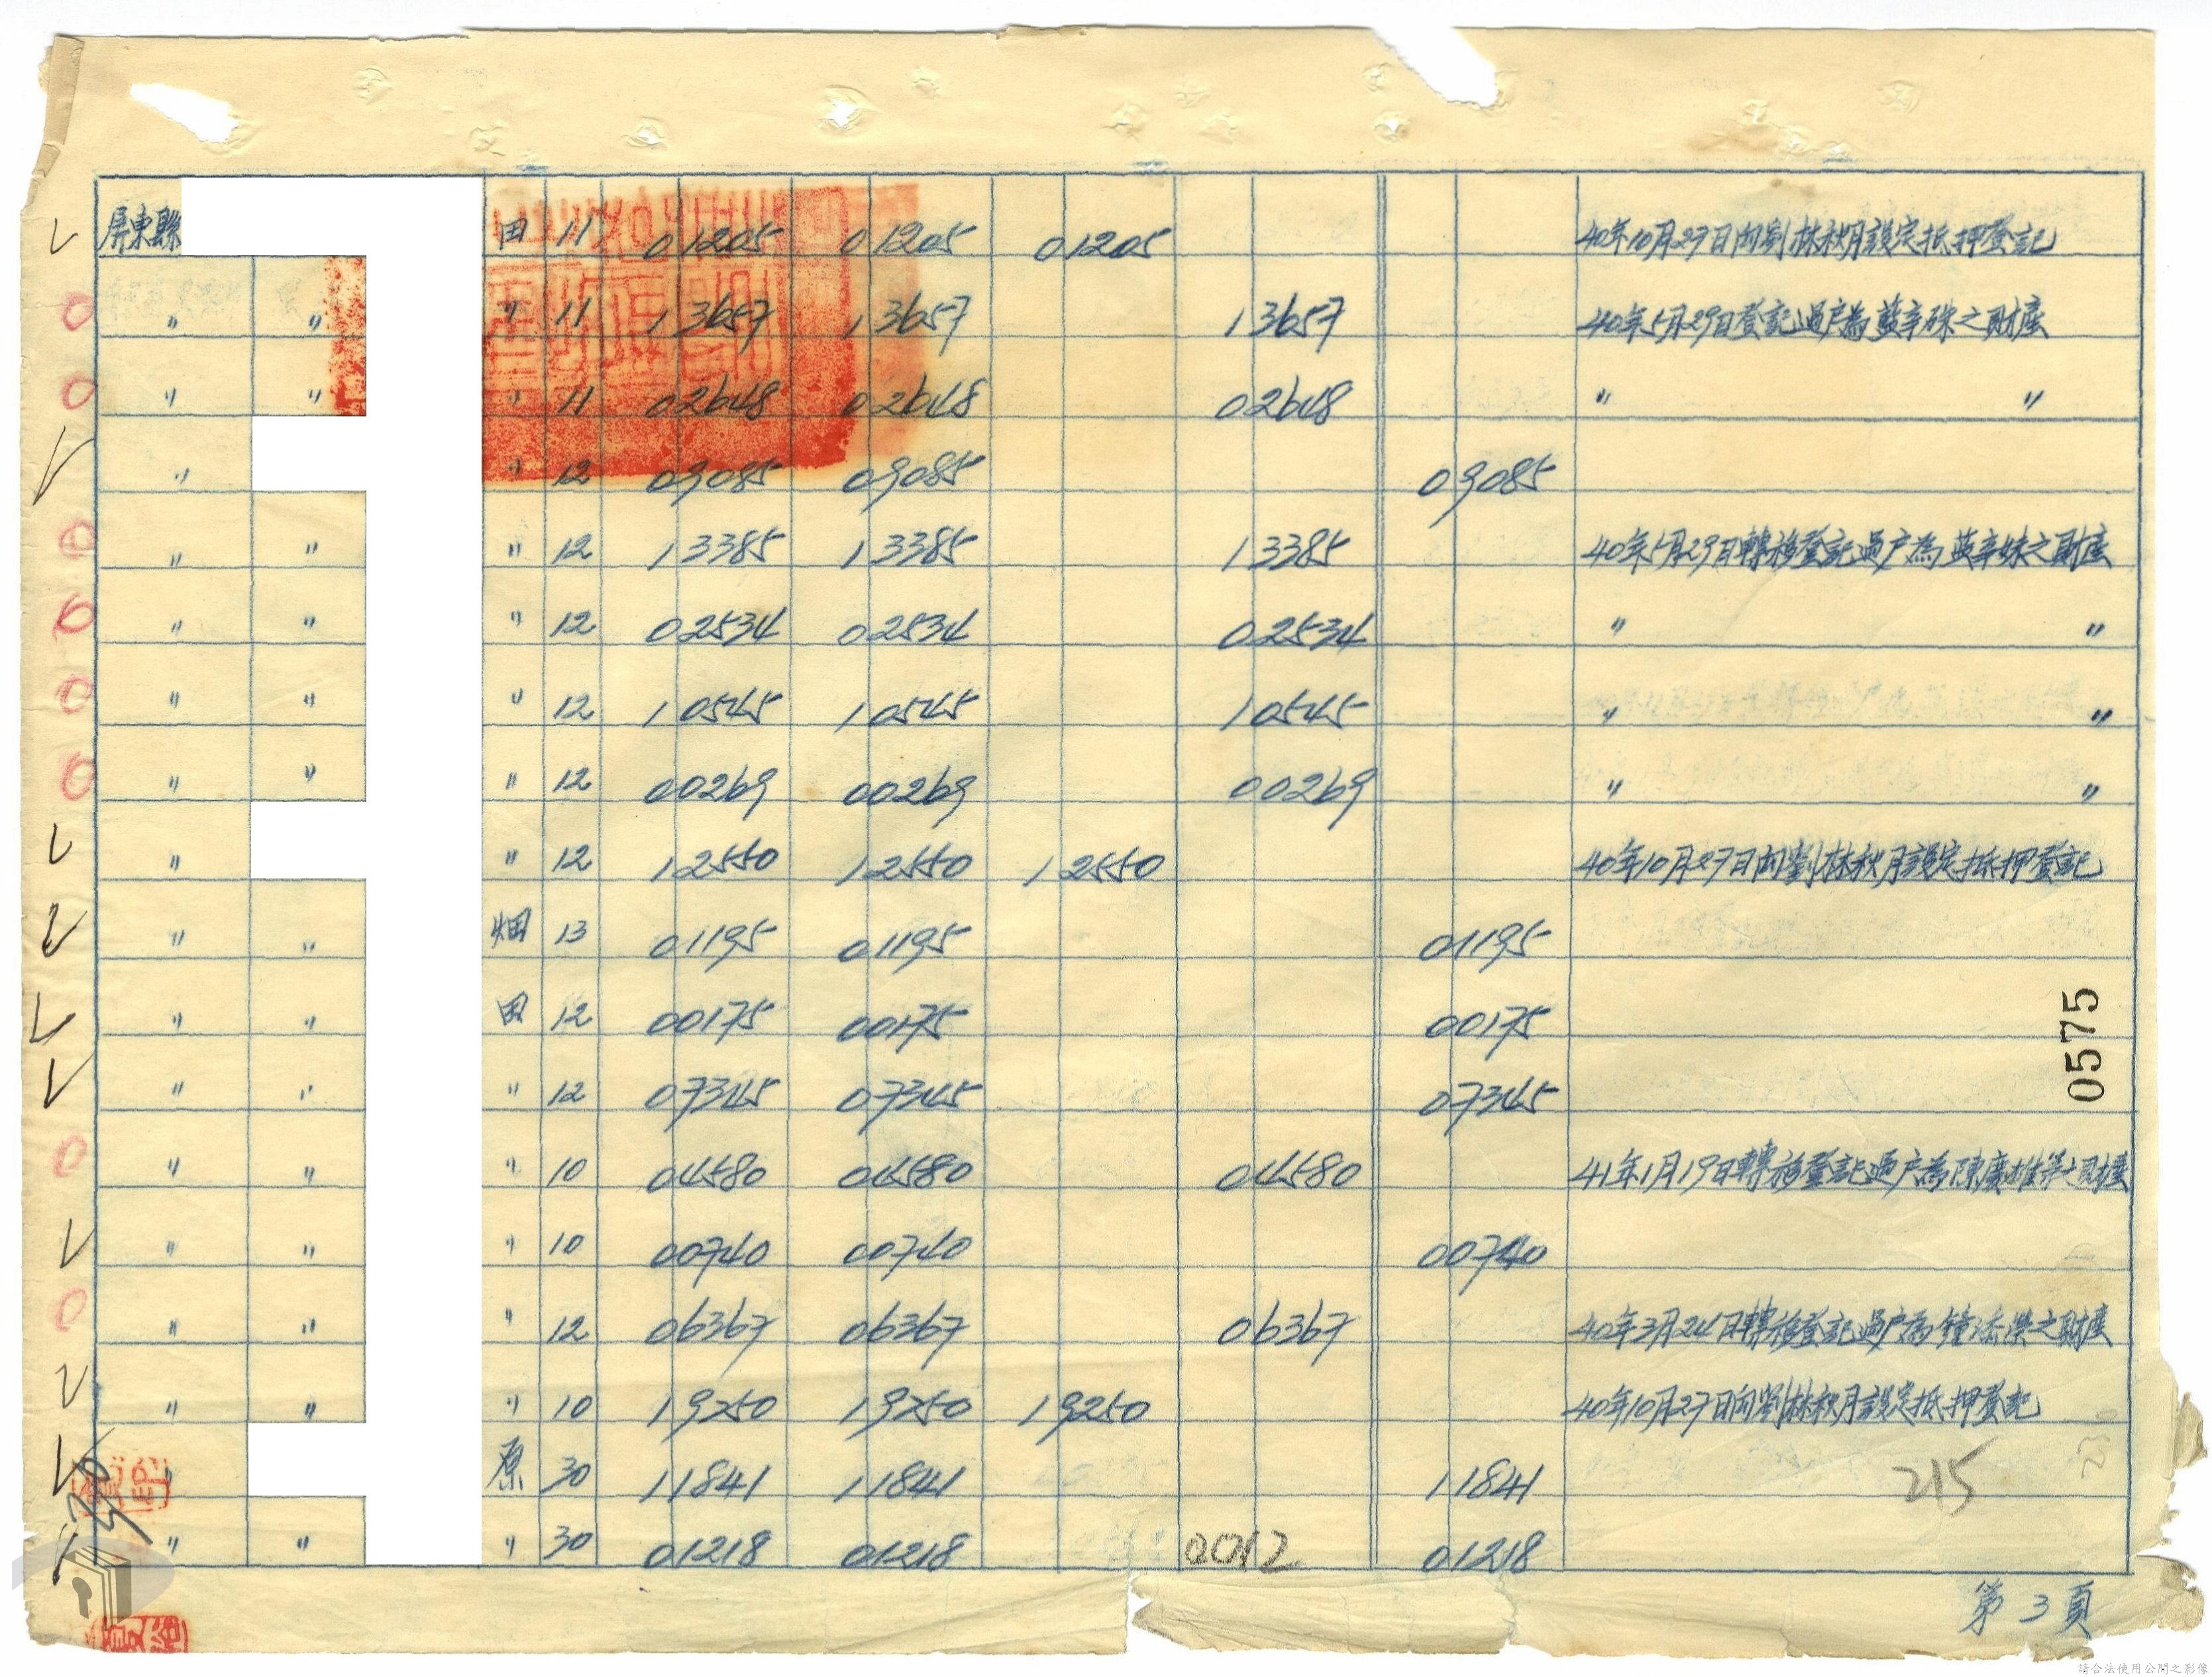 屏東縣 田 11 01205 01205 01205 40年10月27日向劉林秋月設定抵押登記
〃 〃 〃 11 13657 13657 13657 40年5月29日登記過戶為 之財產
〃 〃 〃 11 02648 02648 02648 〃 〃
〃 〃 12 09085 09085 09085
〃 〃 〃 12 13385 13385 13385 40年5月29日轉移登記過戶為 辛妹之財產
〃 〃 〃 12 02534 02534 02534 〃 〃
〃 〃 〃 12 10545 10545 10545 〃 〃
〃 〃 〃 12 00269 00269 00269 〃 〃
〃 〃 12 12550 12550 12550 40年10月27日向劉林秋月設定抵押登記
〃 〃 畑 13 01195 01195 01195
〃 〃 田 12 00175 00175 00175
〃 〃 〃 12 07345 07345 07345
〃 〃 〃 10 04580 04580 04580 41年1月19日轉移登記過戶為陳慶雄等之財產
〃 〃 〃 10 00740 00740 00740
〃 〃 〃 12 06367 06367 06367 40年3月24日轉移登記過戶為鍾添 之財產
〃 〃 〃 10 19250 19250 19250 40年10月27日向劉林秋月設定抵押登記
〃 原 30 11841 11841 11841
215
〃 〃 〃 30 01218 01218 01218
0012
0575
第3頁
請合法使用公開之影像